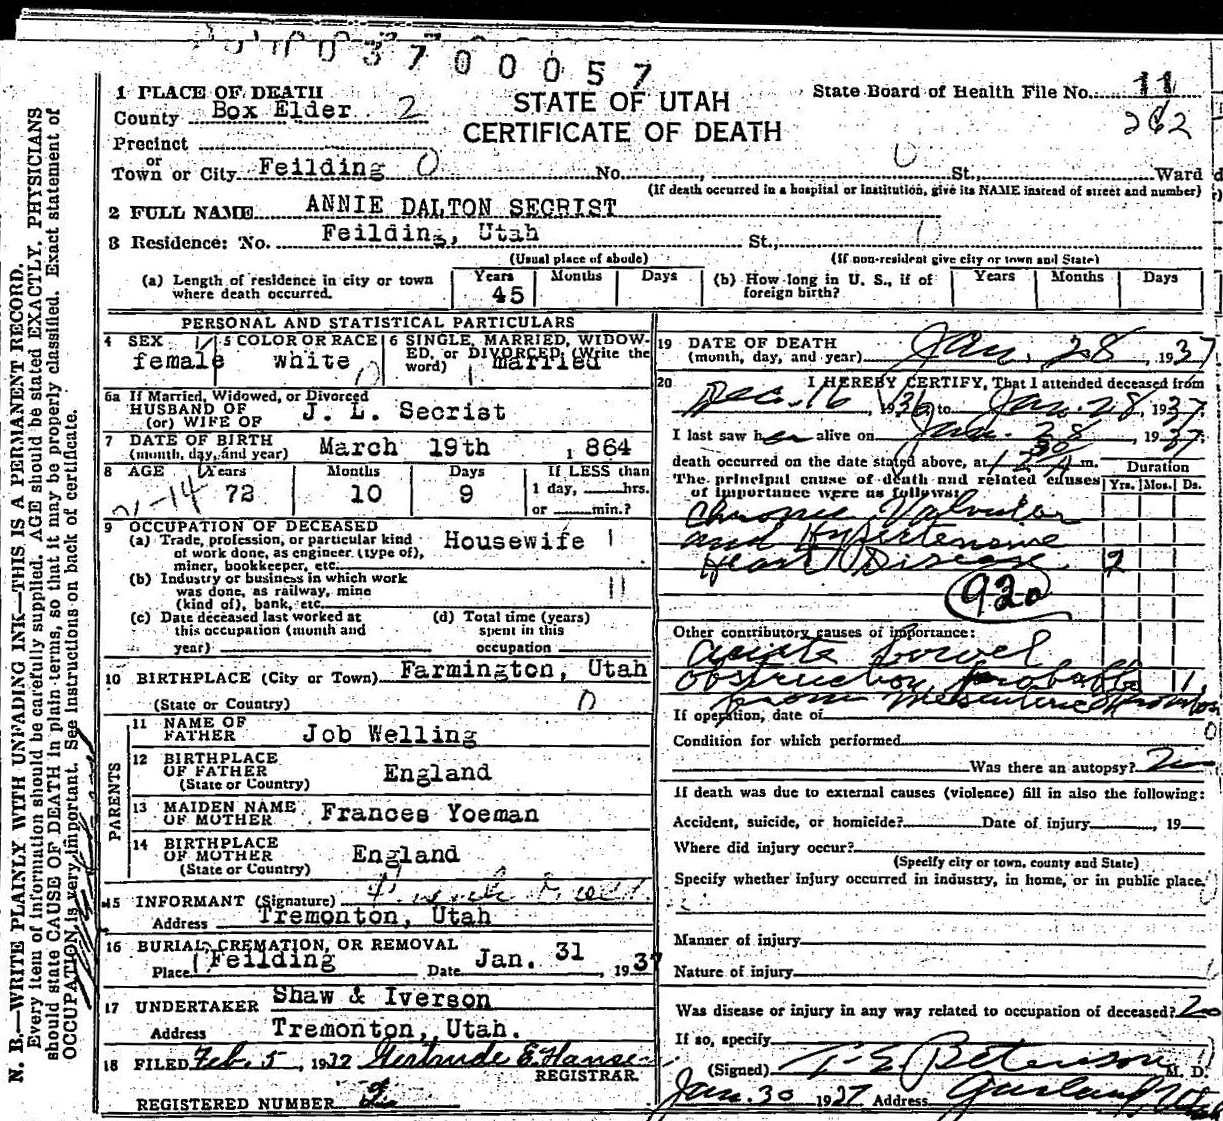 0 3 7 0 0 0 5 7
1 PLACE OF DEATH
STATE OF UTAH
CERTIFICATE OF DEATH
State Board of Health File No. 11
262
County Box Elder 2
Precinct
or
Town or City Feilding 0 No. , St., Ward
(If death occurred in a hospital or institution, give its NAME instead of street and number)
2 FULL NAME ANNIE DALTON SECRIST
3 Residence: No. Feilding, Utah St.,
(Usual place of abode) (If non-resident give city or town and State)
(a) Length of residence in city or town where death occurred. Years 45 Months Days
(b) How long in U. S., if of foreign birth? Years Months Days
PERSONAL AND STATISTICAL PARTICULARS
4 SEX female
5 COLOR OR RACE white
6 SINGLE, MARRIED, WIDOWED, or DIVORCED (Write the word) married
6a If Married, Widowed, or Divorced
HUSBAND OF
(or) WIFE OF J. L. Secrist
7 DATE OF BIRTH
(month, day, and year) March 19th 1864
8 AGE Years 72 Months 10 Days 9
If LESS than
1 day, hrs.
or min.?
9 OCCUPATION OF DECEASED
(a) Trade, profession, or particular kind
of work done, as engineer, (type of),
miner, bookkeeper, etc. Housewife
(b) Industry or business in which work
was done, as railway, mine
(kind of), bank, etc.
(c) Date deceased last worked at
this occupation (month and
year)
(d) Total time (years)
spent in this
occupation
10 BIRTHPLACE (City or Town) Farmington, Utah
(State or Country)
PARENTS
11 NAME OF
FATHER Job Welling
12 BIRTHPLACE
OF FATHER England
(State or Country)
13 MAIDEN NAME
OF MOTHER Frances Yoeman
14 BIRTHPLACE
OF MOTHER England
(State or Country)
15 INFORMANT (Signature)
Address Tremonton, Utah
16 BURIAL, CREMATION, OR REMOVAL
Place Feilding Date Jan. 31, 1937
17 UNDERTAKER Shaw & Iverson
Address Tremonton, Utah.
18 FILED Feb. 5, 1937 Gertrude E. Hansen
REGISTRAR
REGISTERED NUMBER 2
19 DATE OF DEATH
(month, day, and year) Jan. 28, 1937
20 I HEREBY CERTIFY, That I attended deceased from
Dec. 16 1936 to Jan. 28, 1937.
I last saw her alive on Jan. 28, 1937.
death occurred on the date stated above, at m.
Duration
The principal cause of death and related causes
of importance were as follows: Yrs. Mos. Ds.
Chronic Valvular
and Hypertensive
Heart Disease 2
920
Other contributory causes of importance:
Acute bowel
obstruction probable 1
from mesenteric thrombosis
If operation, date of
Condition for which performed
Was there an autopsy? no
If death was due to external causes (violence) fill in also the following:
Accident, suicide, or homicide? Date of injury , 19
Where did injury occur?
(Specify city or town, county and State)
Specify whether injury occurred in industry, in home, or in public place.
Manner of injury
Nature of injury
Was disease or injury in any way related to occupation of deceased? no
If so, specify
(Signed) T E Peterson M. D.
Jan. 30 1937 Address Garland Utah
N. B.—WRITE PLAINLY WITH UNFADING INK—THIS IS A PERMANENT RECORD.
Every item of information should be carefully supplied. AGE should be stated EXACTLY. PHYSICIANS
should state CAUSE OF DEATH in plain terms, so that it may be properly classified. Exact statement of
OCCUPATION is very important. See instructions on back of certificate.